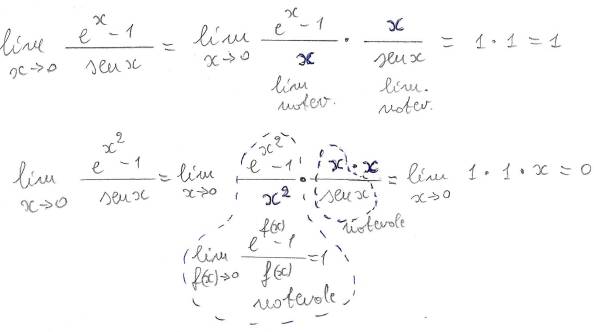 lim x→0 (e^x - 1)/(sen x) = lim x→0 (e^x - 1)/x · x/(sen x) = 1 · 1 = 1
lim notev. lim. notev.
lim x→0 (e^(x^2) - 1)/(sen x) = lim x→0 (e^(x^2) - 1)/(x^2) · (x · x)/(sen x) = lim x→0 1 · 1 · x = 0
notevole
lim f(x)→0 (e^(f(x)) - 1)/(f(x)) = 1
notevole